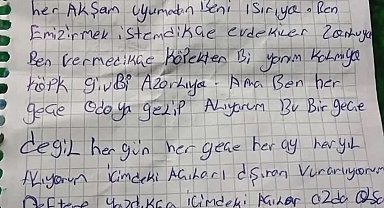 her AKşam uyumadan Beni ısırıya. Ben
Emizirmek istemedikçe evdekiler zorluya
Ben vermedikçe köPekten Bi yarım kalmıya
köPk giviBi Azarlıya. Ama Ben her
gece odoya geliP Alıyorum Bu Bir gece
degiL her gün her gece her ay her yıl
Alıyorum içimdeki Acıları dşıran vurarlıyorum
Deftere yazdıkça içimdeki